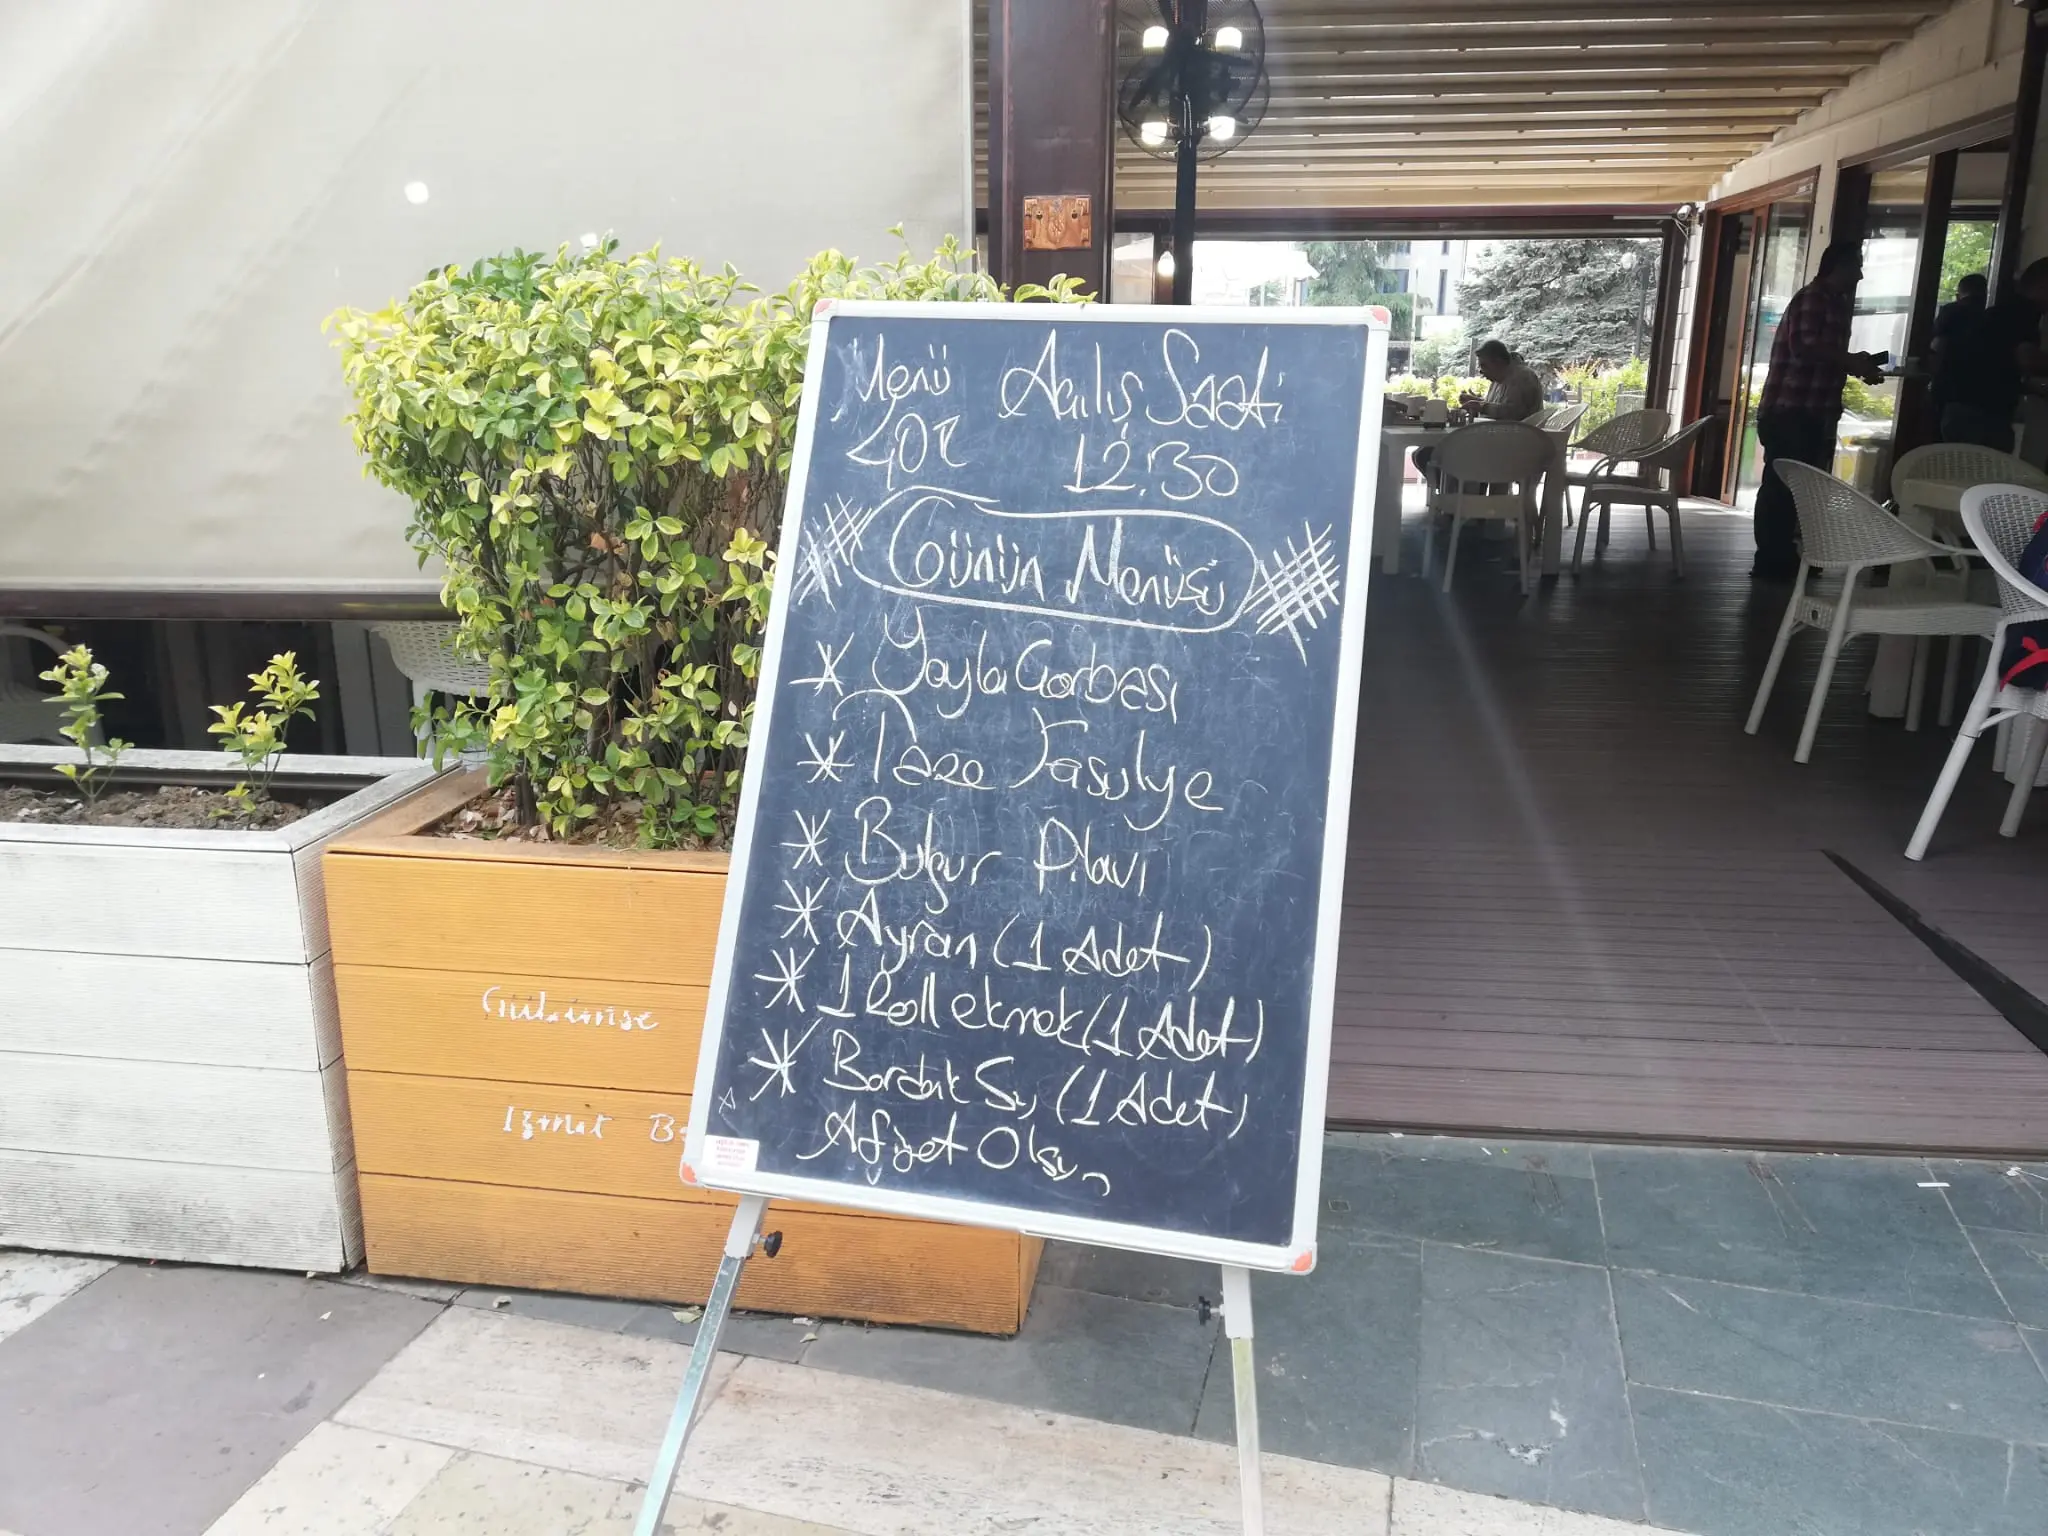 Menü Açılış Saati
40TL 12.30
Günün Menüsü
* Yayla Çorbası
* Taze Fasulye
* Bulgur Pilavı
* Ayran (1 Adet)
* 1 Roll ekmek (1 Adet)
* Bardak Su (1 Adet)
Afiyet Olsun
Gülümse
İzmit